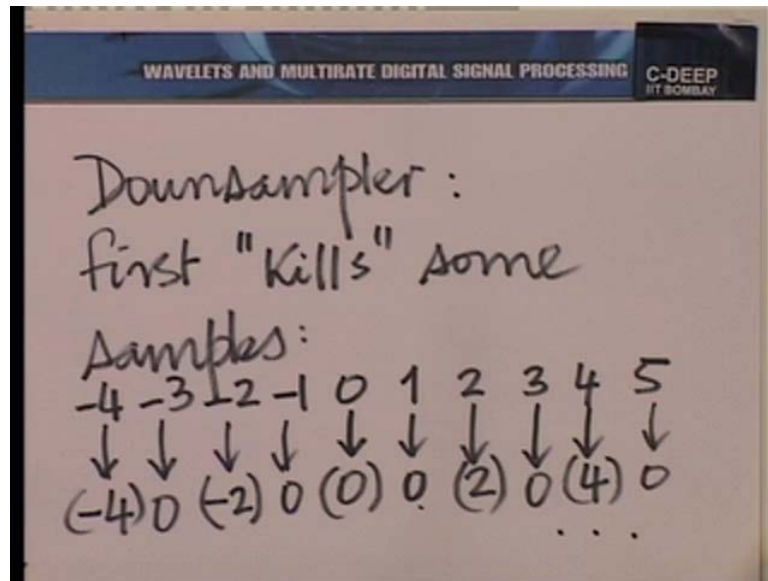 WAVELETS AND MULTIRATE DIGITAL SIGNAL PROCESSING
C-DEEP
IIT BOMBAY
Downsampler:
first "Kills" some
samples:
-4 -3 -2 -1 0 1 2 3 4 5
↓ ↓ ↓ ↓ ↓ ↓ ↓ ↓ ↓ ↓
(-4) 0 (-2) 0 (0) 0 (2) 0 (4) 0
...